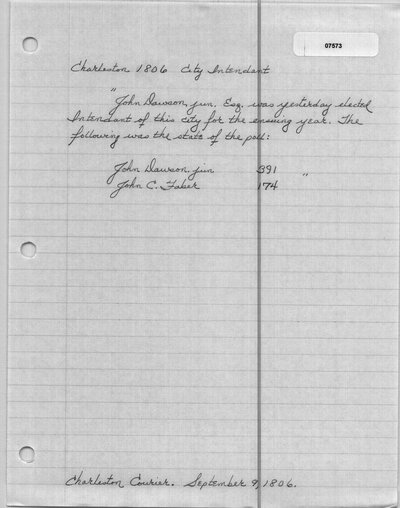 07573
Charleston 1806 City Intendant
"John Dawson, jun. Esq. was yesterday elected
Intendant of this city for the ensuing year. The
following was the state of the poll:
John Dawson, jun 391
John C. Faber 174 "
Charleston Courier. September 9, 1806.